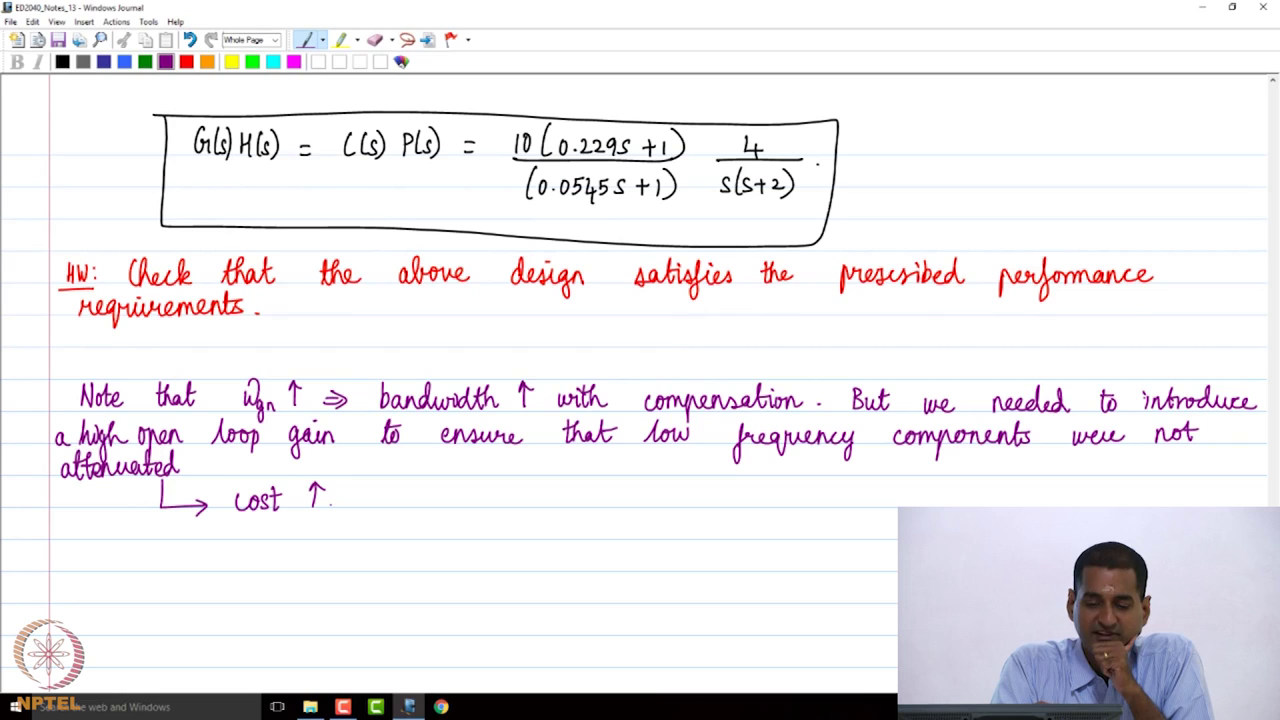 ED2040_Notes_13 - Windows Journal
File Edit View Insert Actions Tools Help
Whole Page
B I
G(s) H(s) = C(s) P(s) = 10(0.229s + 1) / (0.0545s + 1) 4 / s(s+2) .
HW: Check that the above design satisfies the prescribed performance
requirements.
Note that ω̂gn ↑ ⇒ bandwidth ↑ with compensation. But we needed to introduce
a high open loop gain to ensure that low frequency components were not
attenuated
↳ cost ↑.
NPTEL
Search the web and Windows